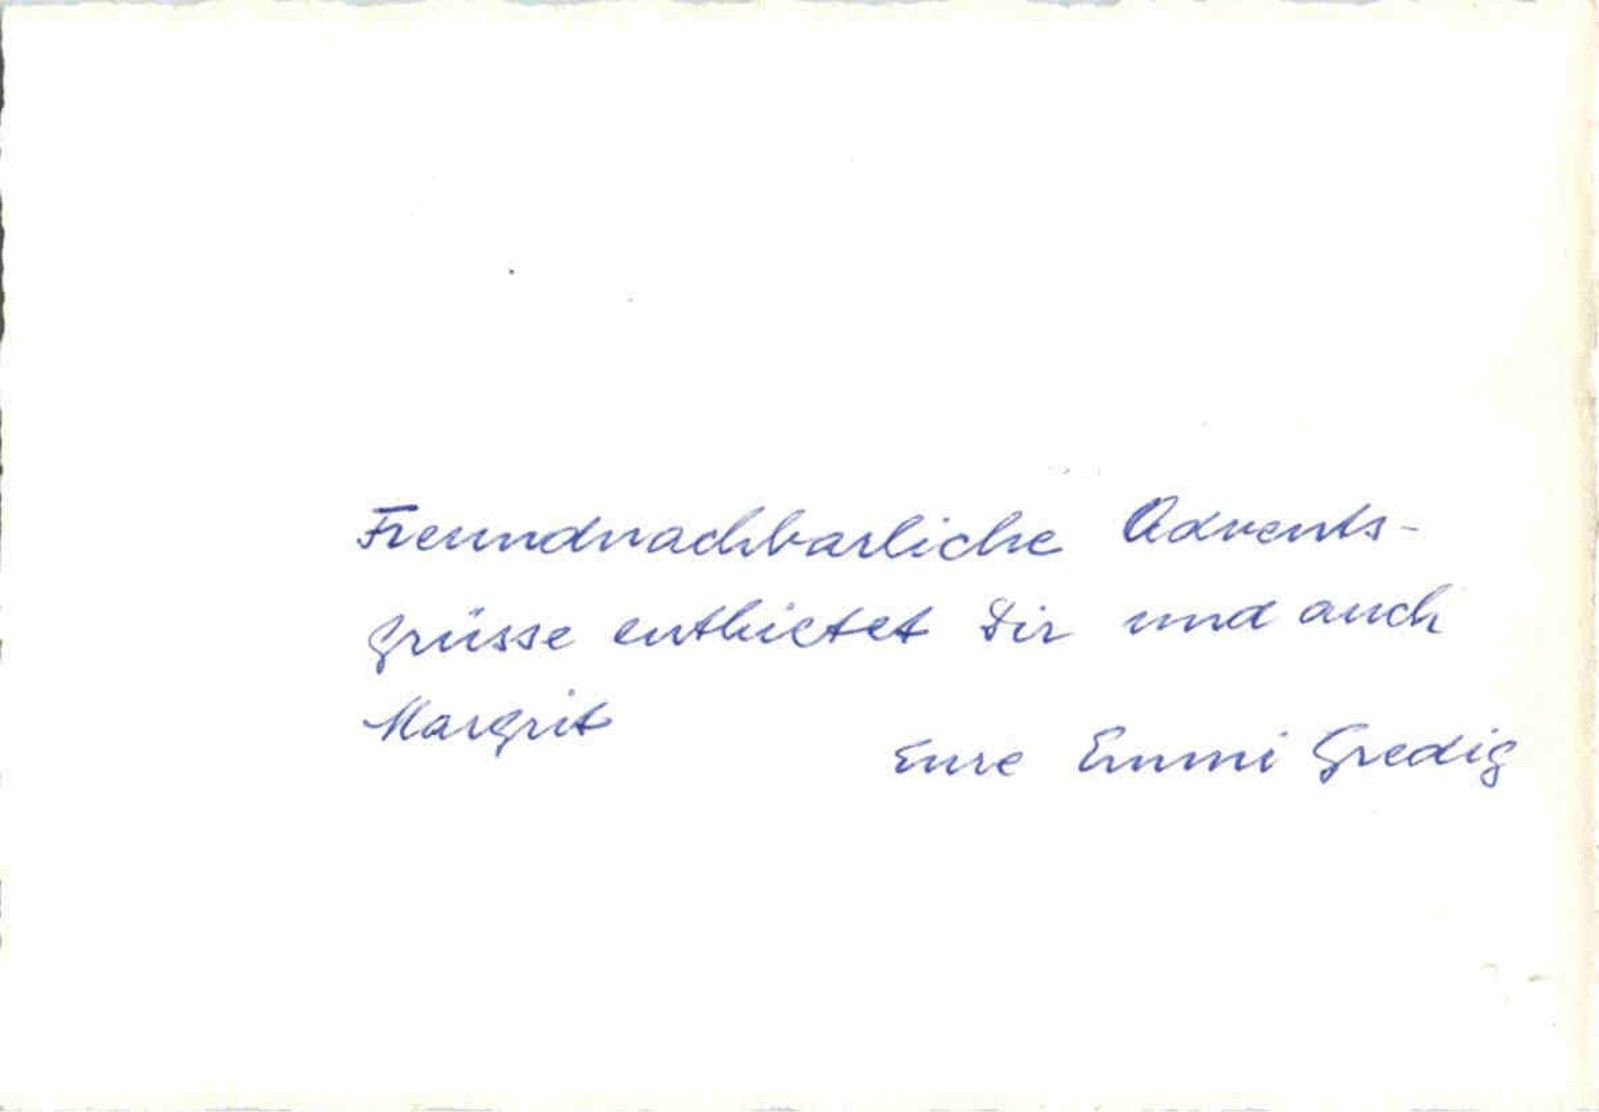 Freundnachbarliche Advents-
grüsse entbietet Dir und auch
Margrit
Eure Emmi Gredig